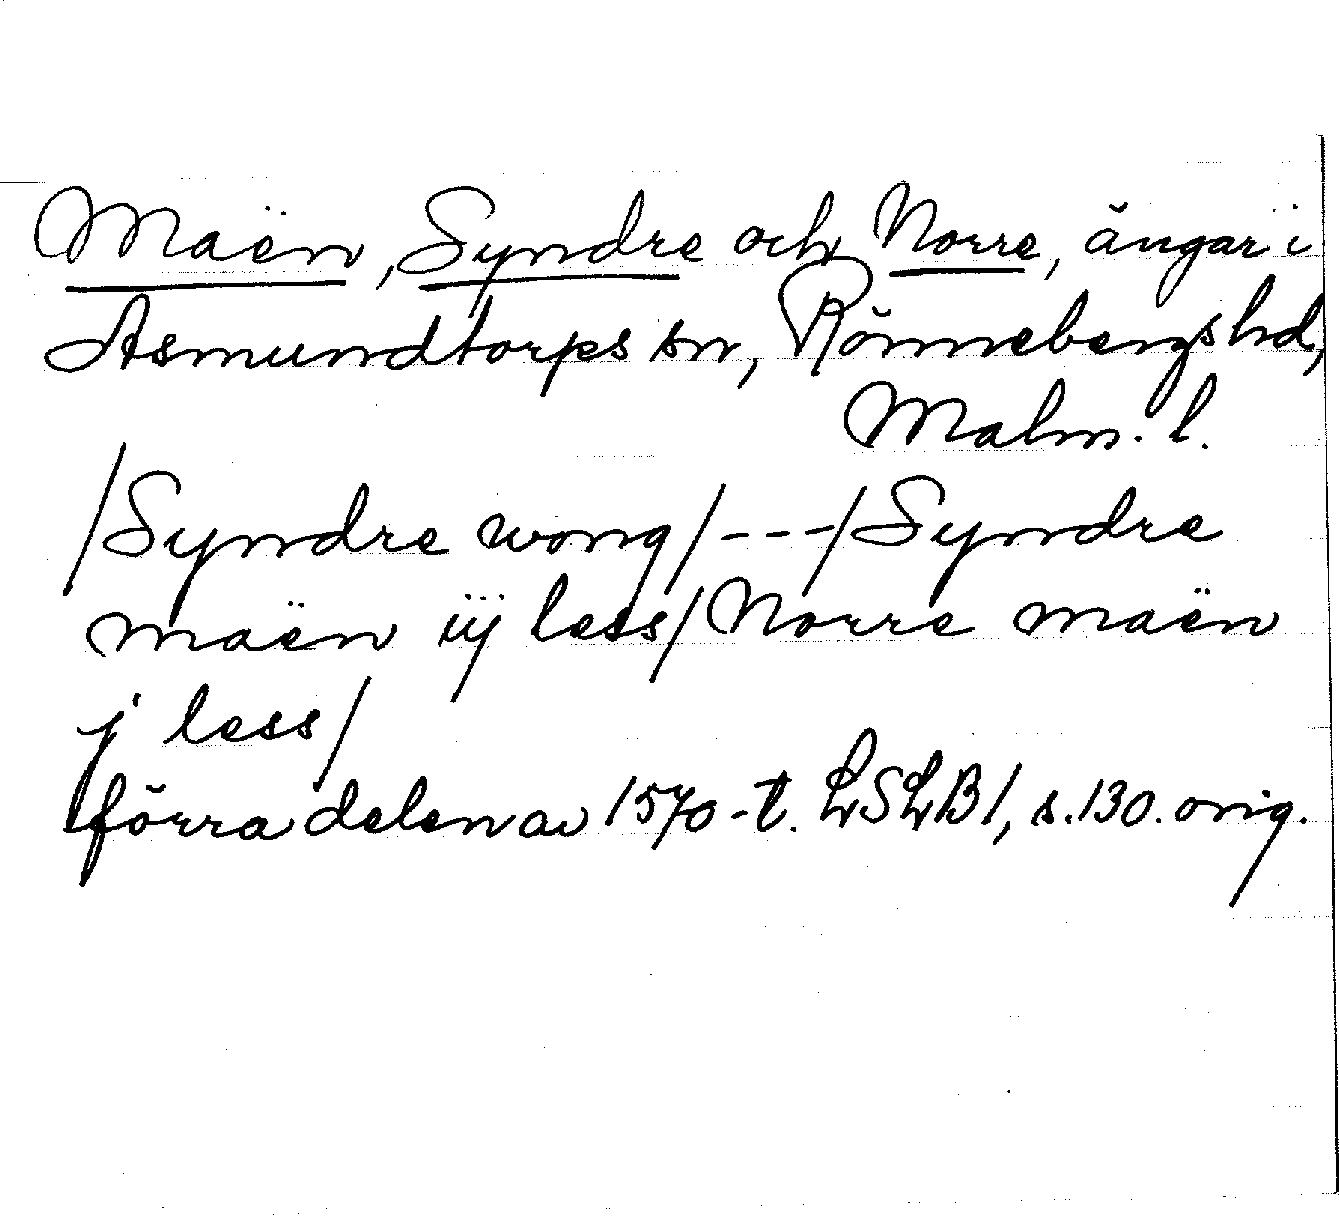 Maën, Syndre och Norre, ängar i
Asmundtorps sn, Rönnebergs hd,
Malm. l.
/Syndre wong/---/Syndre
maën iij less/Norre maën
j less/
förra delen av 1570-t. LSLB1, s.130. orig.